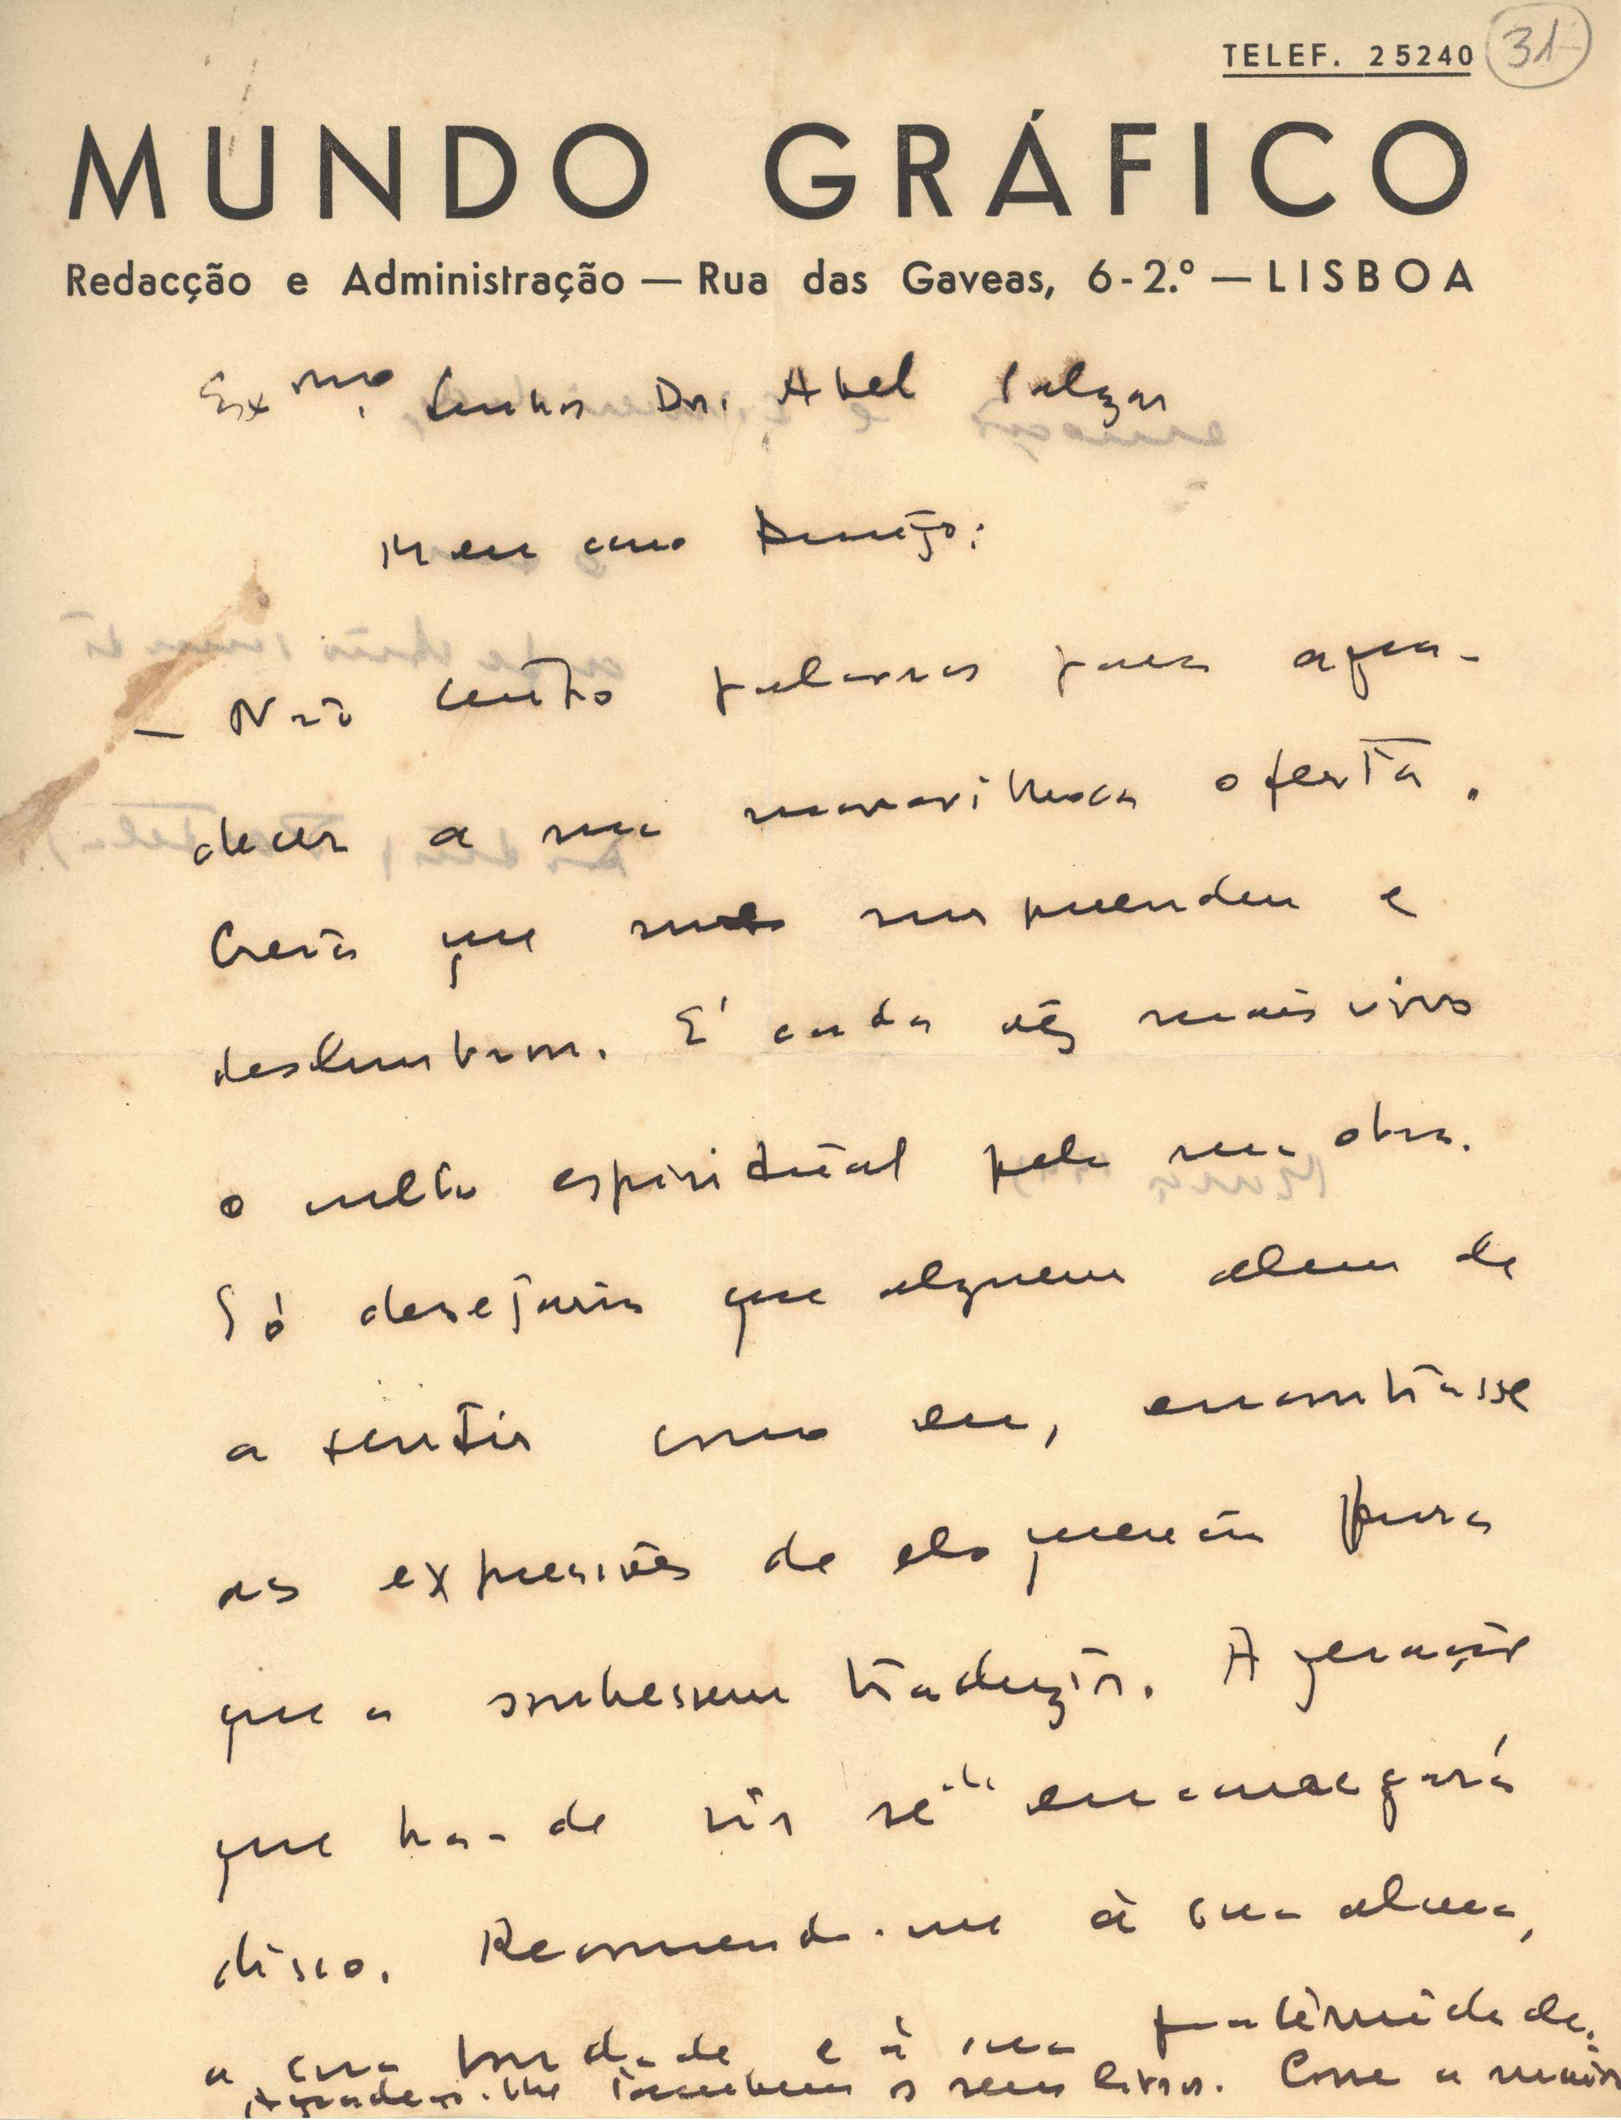 TELEF. 25240
31
MUNDO GRÁFICO
Redacção e Administração — Rua das Gaveas, 6-2.º — LISBOA
Exmo. Senhor Dr. Abel Salazar
Meu caro Amigo:
— Não tenho palavras para agra-
decer a sua maravilhosa oferta.
Creia que me surpreendeu e
deslumbrou. É cada vez mais vivo
o culto espiritual pela sua obra.
Só desejaria que alguem alem de
a sentir como eu, encontrasse
as expressões de eloquencia para
que a soubessem traduzir. A geração
que ha-de vir se encarregará
disso. Recomendo-me à sua alma,
a sua bondade e à sua fraternidade.
Agradeço-lhe tambem o seu livro. Com a maior